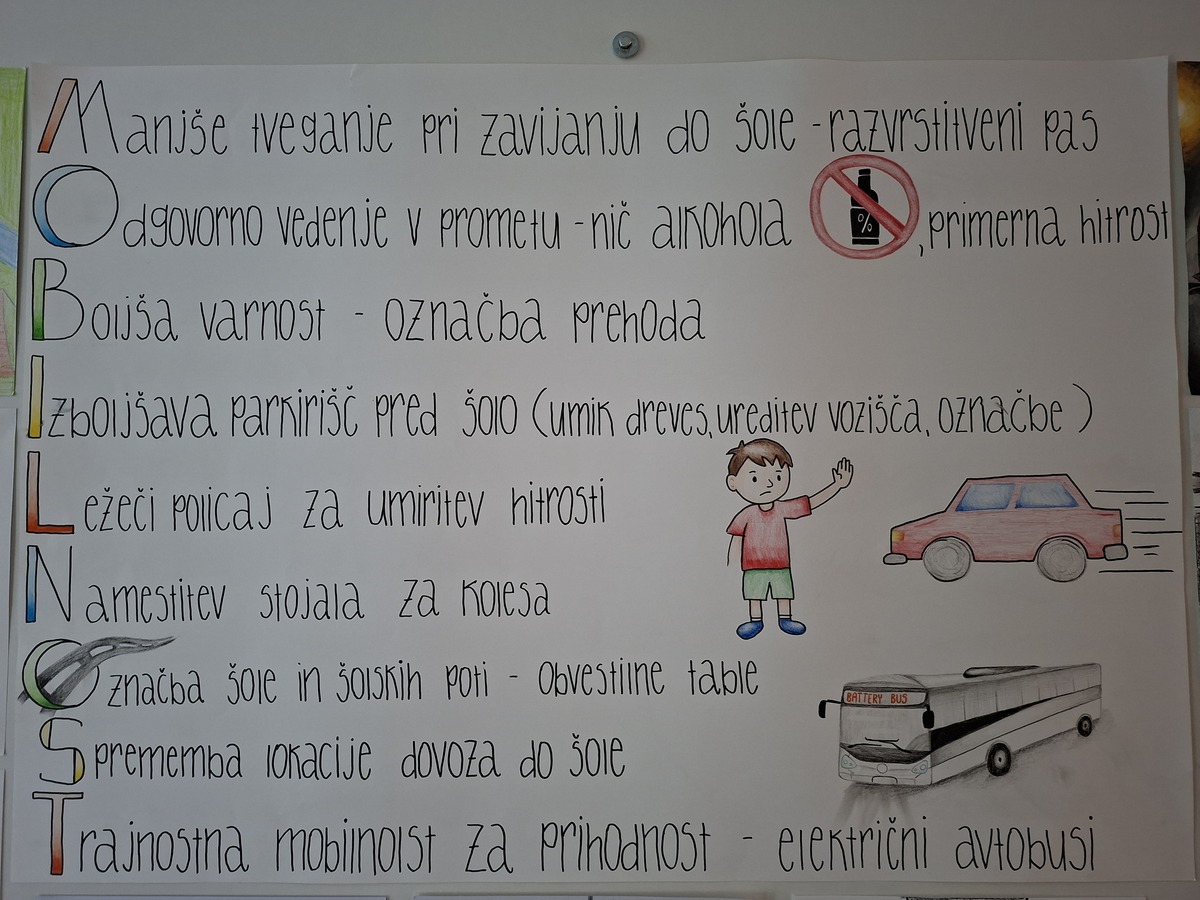 Manjše tveganje pri zavijanju do šole - razvrstitveni pas
Odgovorno vedenje v prometu - nič alkohola % , primerna hitrost
Boljša varnost - označba prehoda
Izboljšava parkirišč pred šolo (umik dreves, ureditev vozišča, označbe)
Ležeči policaj za umiritev hitrosti
Namestitev stojala za kolesa
Označba šole in šolskih poti - Obvestilne table
BATTERY BUS
Sprememba lokacije dovoza do šole
Trajnostna mobilnolst za prihodnost - električni avtobusi